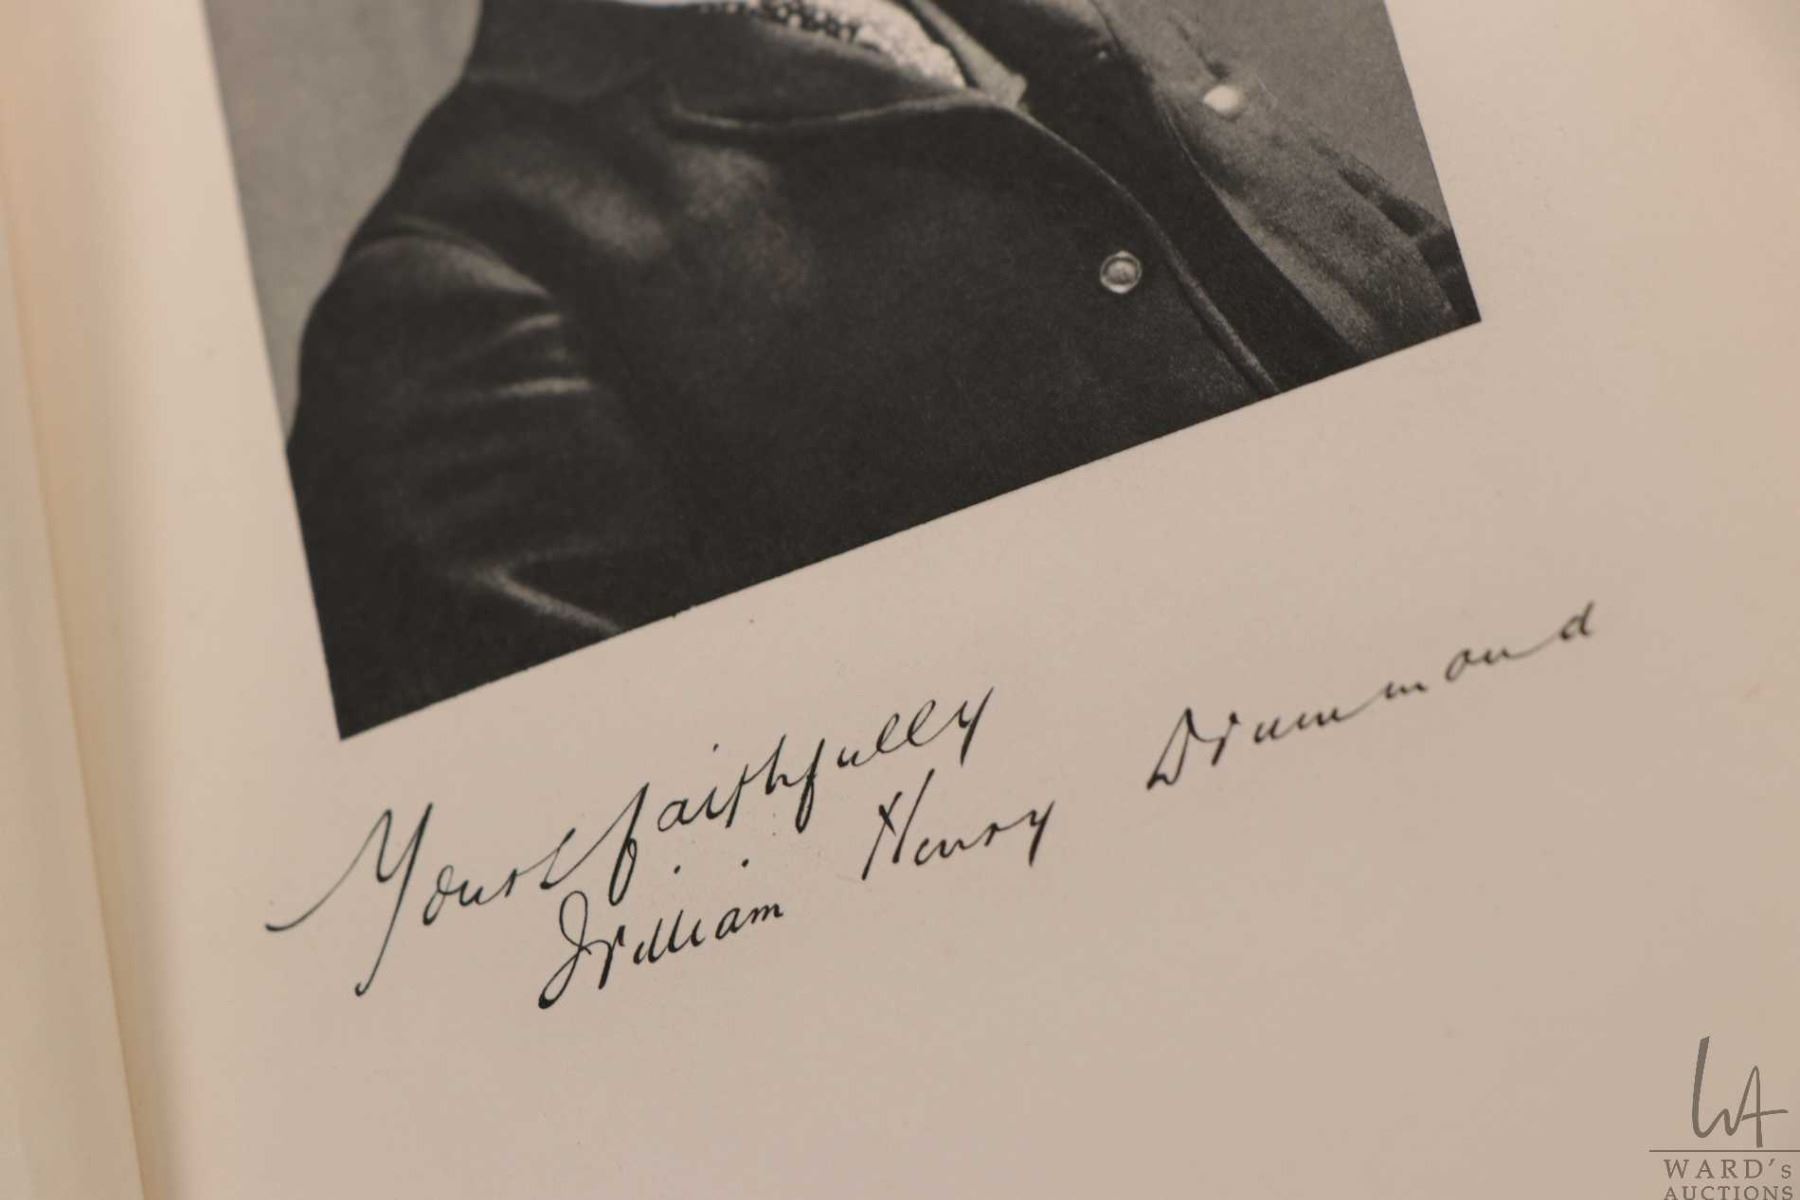 Yours faithfully
William Henry Drummond
WA
WARD's
AUCTIONS